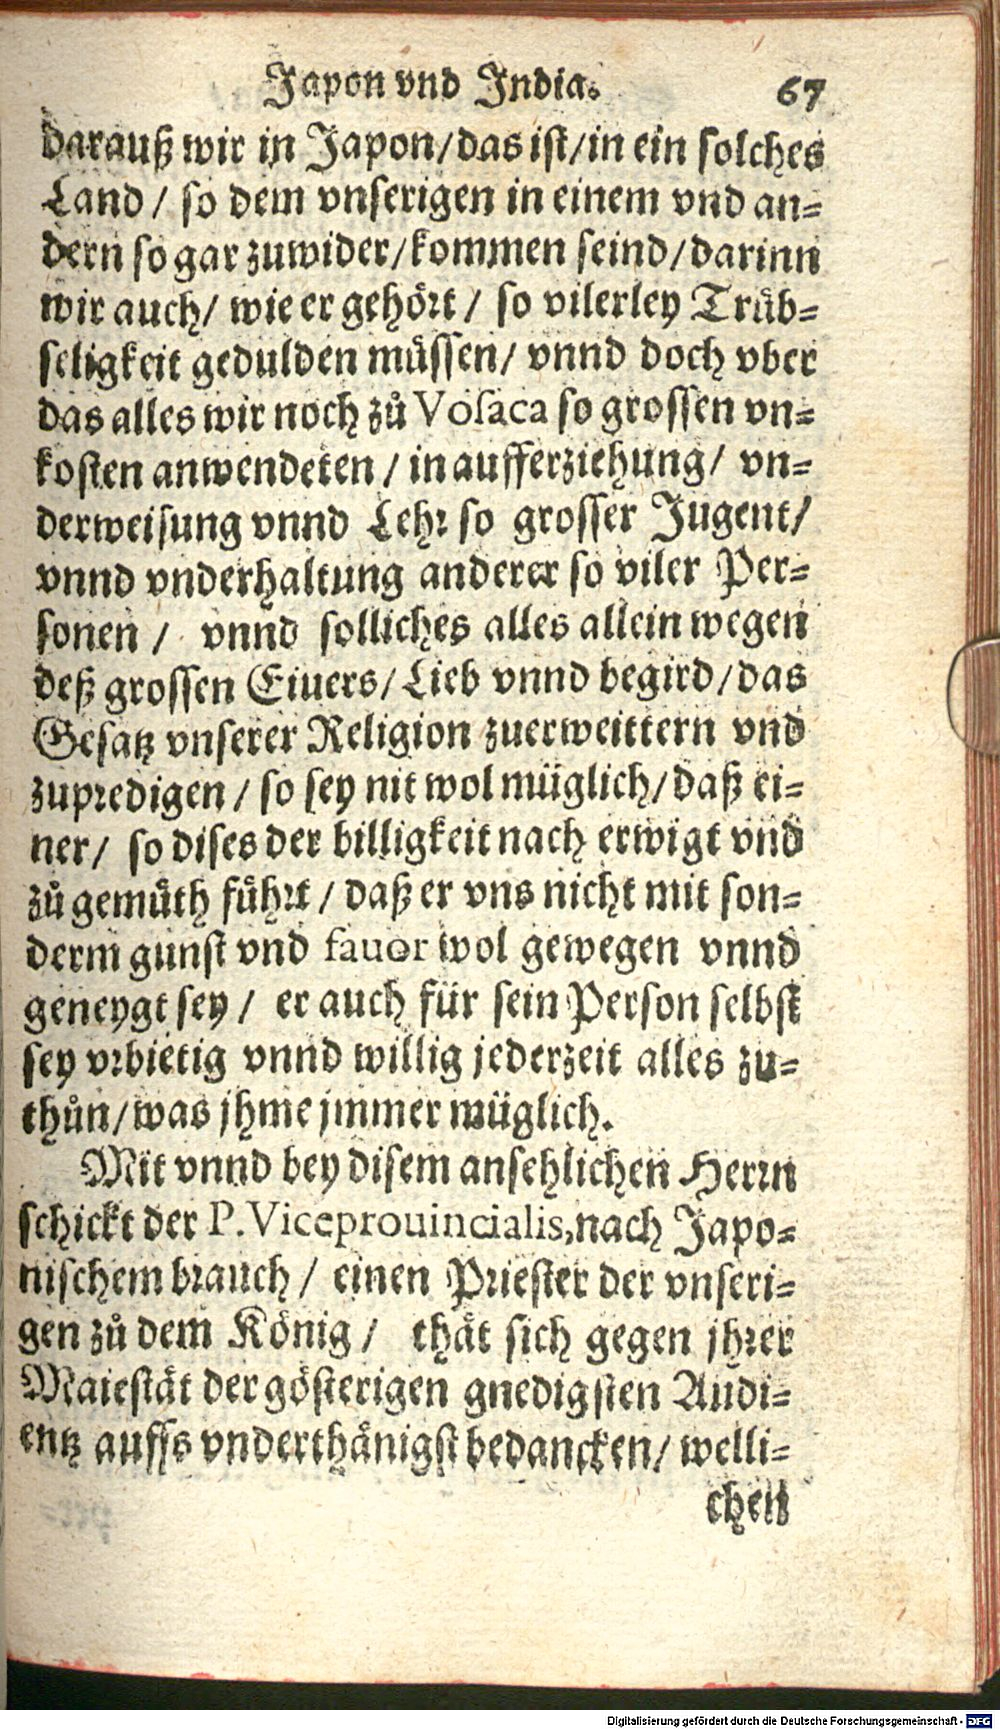 Japon vnd India. 67
darauß wir in Japon/das ist/in ein solches
Land/ so dem vnserigen in einem vnd an-
dern so gar zuwider/kommen seind/darinn
wir auch/ wie er gehört/ so vilerley Trüb-
seligkeit gedulden müssen/ vnnd doch vber
das alles wir noch zů Vosaca so grossen vn-
kosten anwendeten/ in aufferziehung/ vn-
derweisung vnnd Lehr so grosser Jugent/
vnnd vnderhaltung anderer so viler Per-
sonen/ vnnd solliches alles allein wegen
deß grossen Eiuers/Lieb vnnd begird/das
Gesatz vnserer Religion zuerweittern vnd
zupredigen/ so sey nit wol müglich/daß ei-
ner/ so dises der billigkeit nach erwigt vnd
zů gemüth führt/ daß er vns nicht mit son-
derm gunst vnd fauor wol gewegen vnnd
geneygt sey/ er auch für sein Person selbst
sey vrbietig vnnd willig jederzeit alles zu-
thůn/was jhme jmmer müglich.
Mit vnnd bey disem ansehlichen Herrn
schickt der P. Viceprouincialis, nach Japo-
nischem brauch/ einen Priester der vnseri-
gen zů dem König/ thät sich gegen jhrer
Maiestät der gösterigen gnedigsten Audi-
entz auffs vnderthänigst bedancken/ welli-
chen
Digitalisierung gefördert durch die Deutsche Forschungsgemeinschaft - DFG